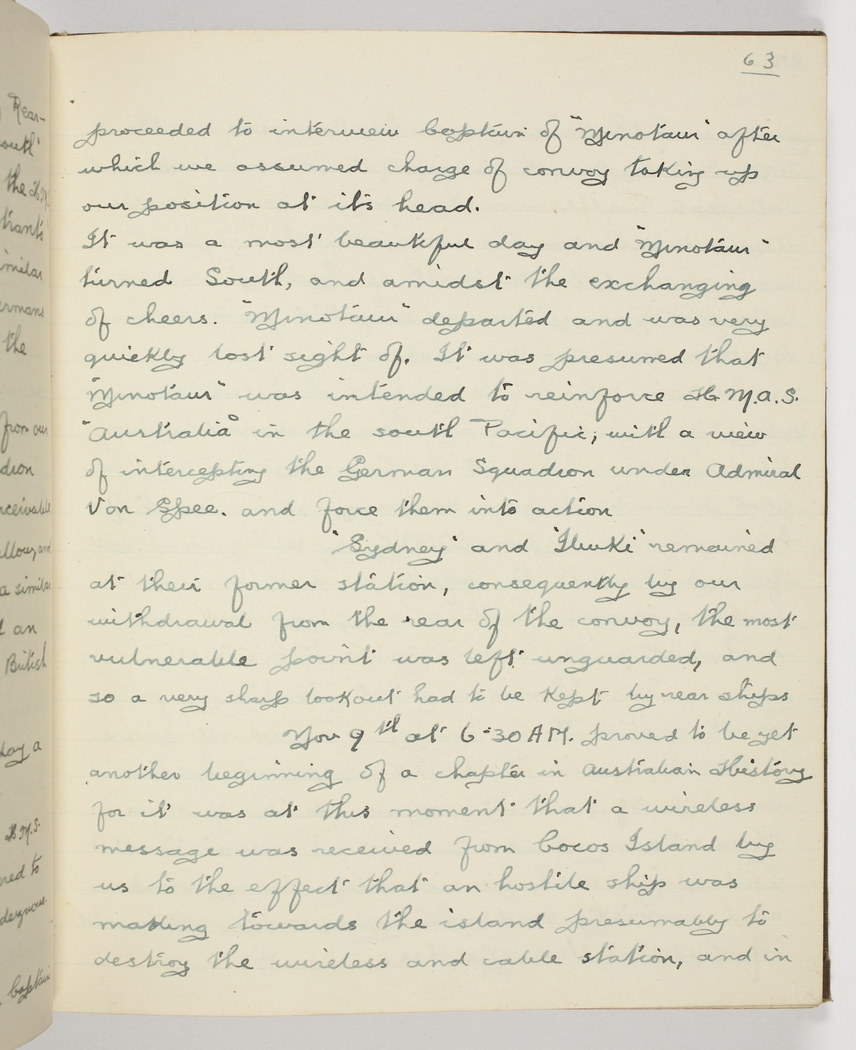 63
proceeded to interview Captain of "Minotaur" after
which we assumed charge of convoy taking up
our position at its head.
It was a most beautiful day and "Minotaur"
turned South, and amidst the exchanging
of cheers. "Minotaur" departed and was very
quickly lost sight of. It was presumed that
"Minotaur" was intended to reinforce H.M.A.S.
"Australia" in the south Pacific; with a view
of intercepting the German Squadron under Admiral
Von Spee. and force them into action
"Sydney" and "Ibuki" remained
at their former station, consequently by our
withdrawal from the rear of the convoy, the most
vulnerable point was left unguarded, and
so a very sharp lookout had to be kept by rear ships
Nov 9th at 6-30 AM. proved to be yet
another beginning of a chapter in Australian History
for it was at this moment that a wireless
message was received from Cocos Island by
us to the effect that an hostile ship was
making towards the island presumably to
destroy the wireless and cable station, and in
Rear-
the H.M.
similar
the
from our
a similar
an
British
day a
H.M.S.
to
Captain